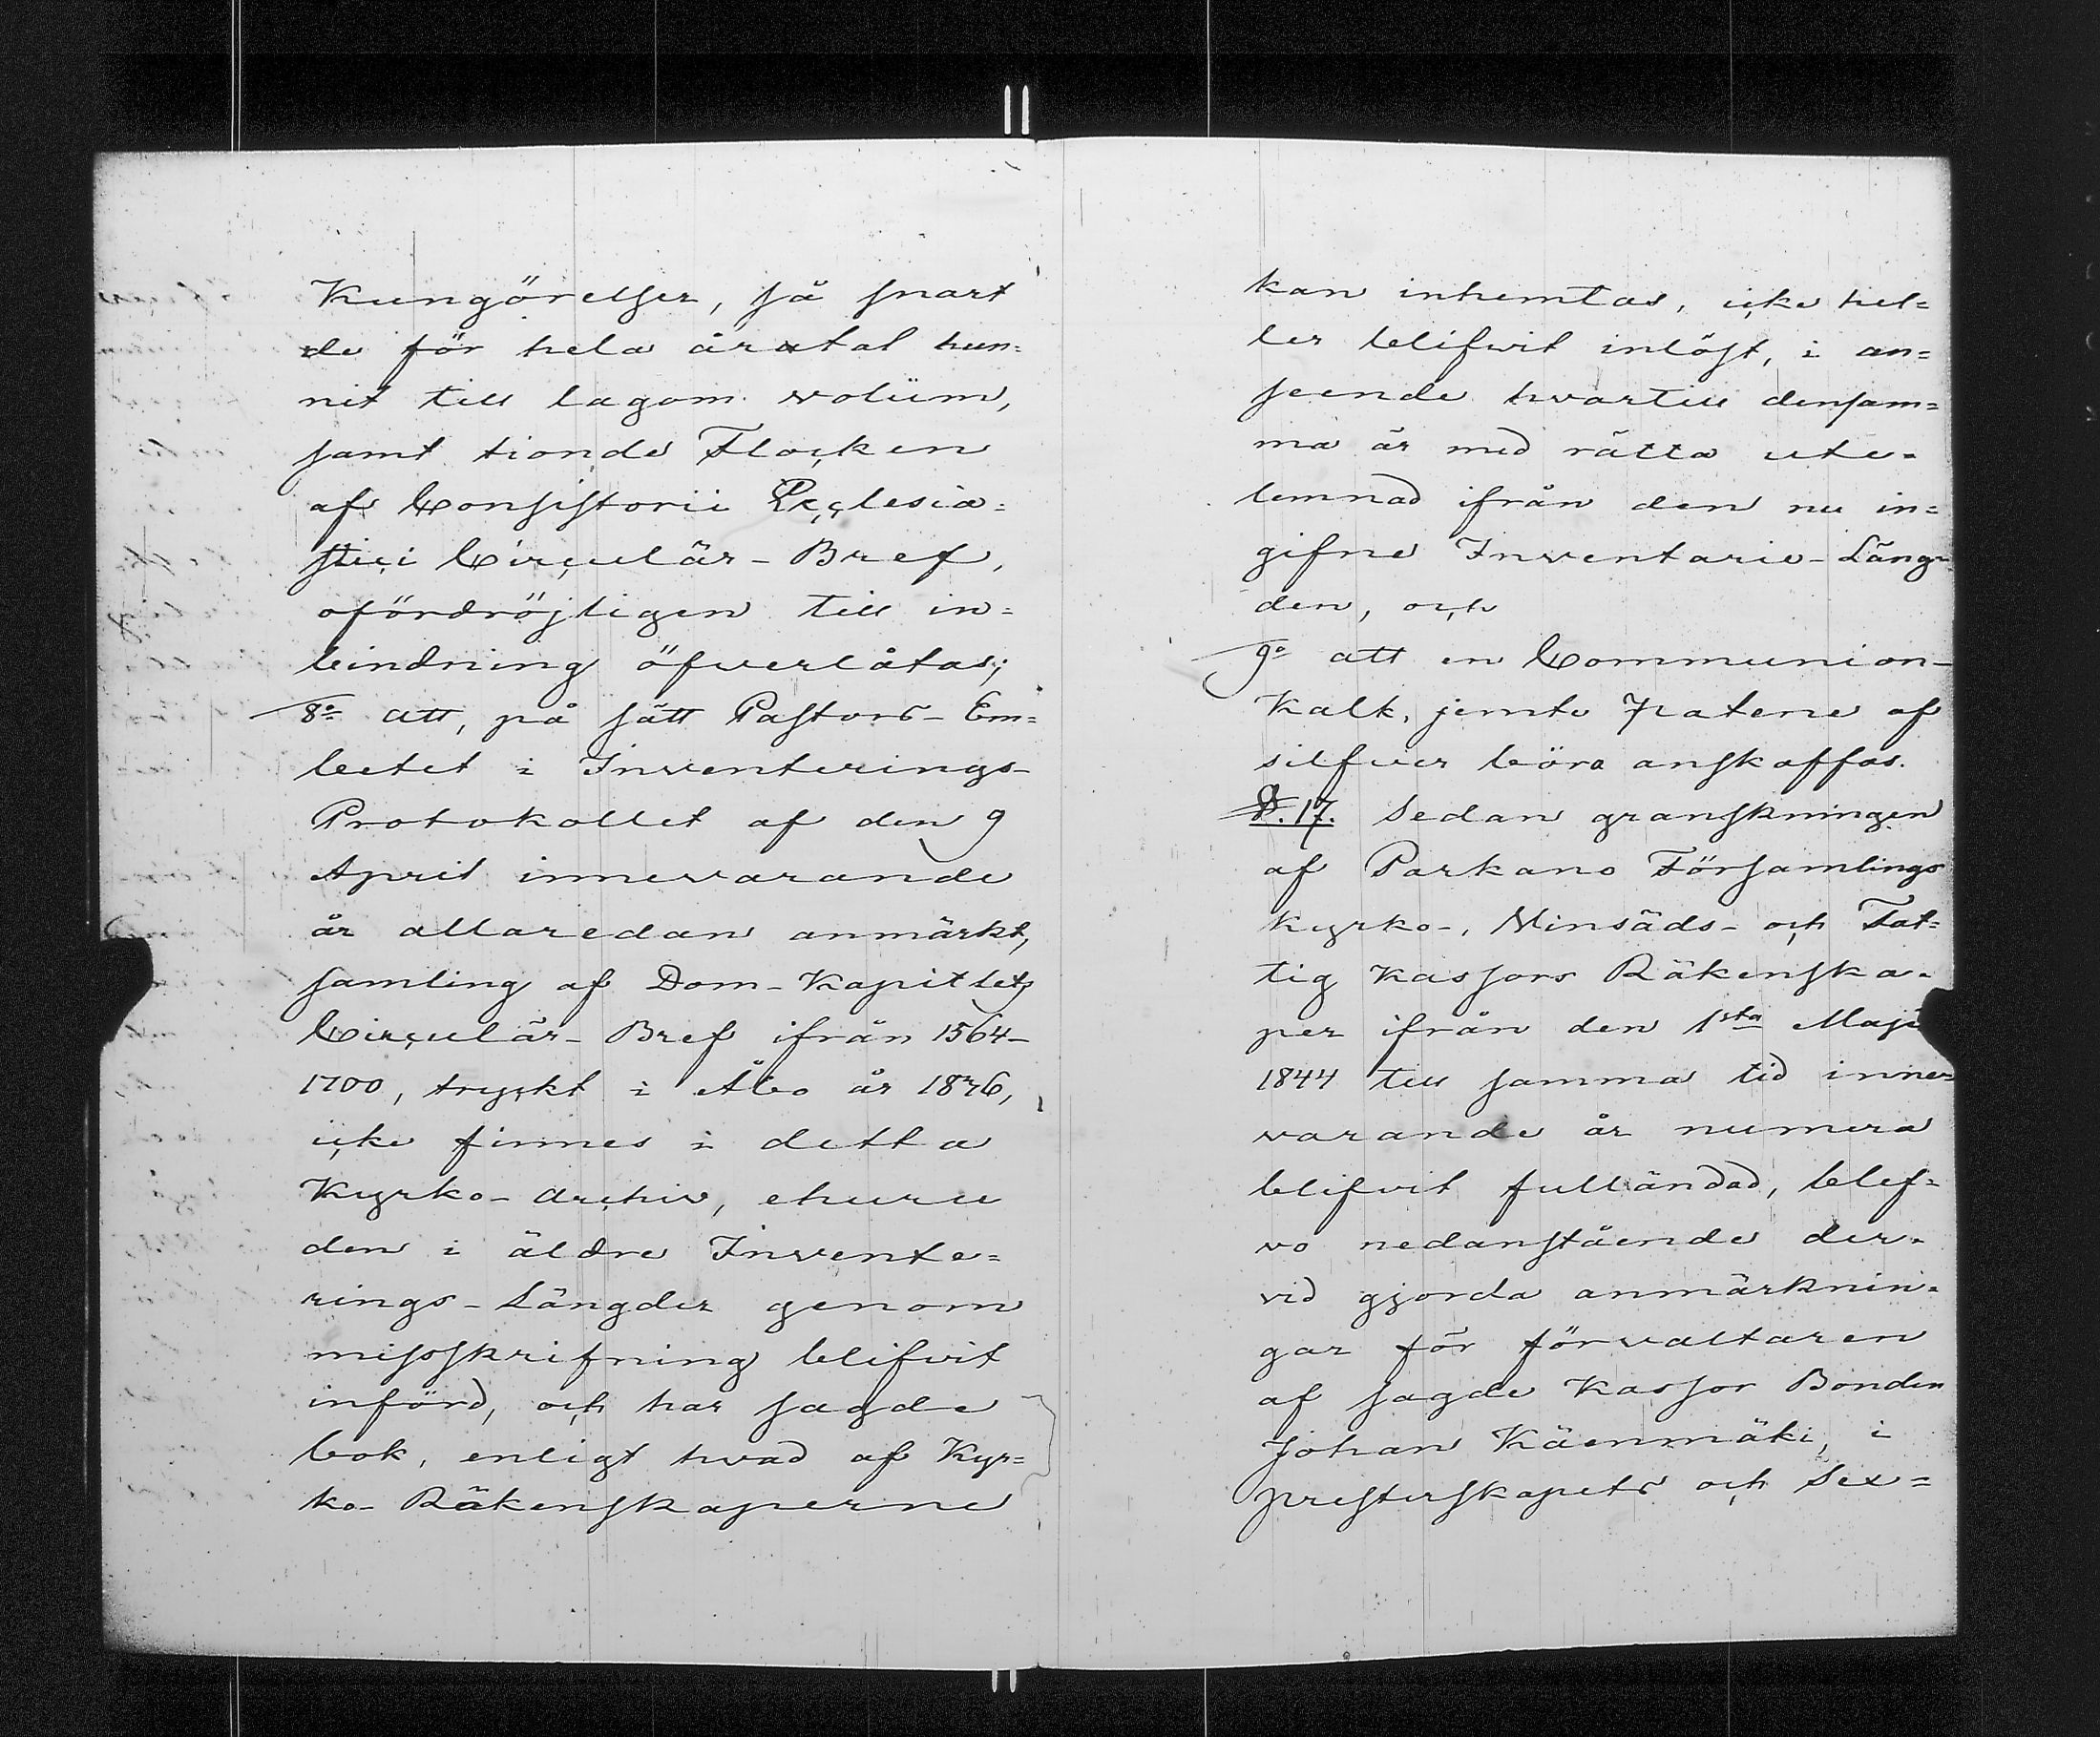 Kungörelser, så snart
de för hela åratal hun=
nit till lagom volüm,
samt tionde Flocken
af Consistorii Ecclesia=
stici Circulär-Bref,
ofördröjligen till in=
bindning öfverlåtas;
8:o att, på sätt Pastors-Em=
betet i Inventerings-
Protokollet af den 9
April innevarande
år allaredan anmärkt,
samling af Dom-Kapitlets
Circulär-Bref ifrån 1564-
1700, tryckt i Åbo år 1836,
icke finnes i detta
Kyrko-Archiv, ehuru
den i äldre Invente=
rings-Längder genom
missskrifning blifvit
införd, och har sagde
bok, enligt hvad af Kyr=
ko-Räkenskaperne
kan inhemtas, icke hel=
ler blifvit inlöst, i an=
seende hvartill densam=
ma är med rätta ute=
lemnad ifrån den nu in=
gifne Inventarie-Läng=
den, och
9:o att en Communion-
Kalk, jemte Patene af
silfver böra anskaffas.
§. 17. Sedan granskningen
af Parkano Församlings
Kyrko-, Vinsäds- och Fat=
tig Kassors Räkenska=
per ifrån den 1sta Maji
1844 till samma tid inne=
varande år numera
blifvit fulländad, blef=
vo nedanstående der=
vid gjorda anmärknin=
gar för förvaltaren
af sagde Kassor Bonden
Johan Käenmäki, i
presterskapets och Sex=